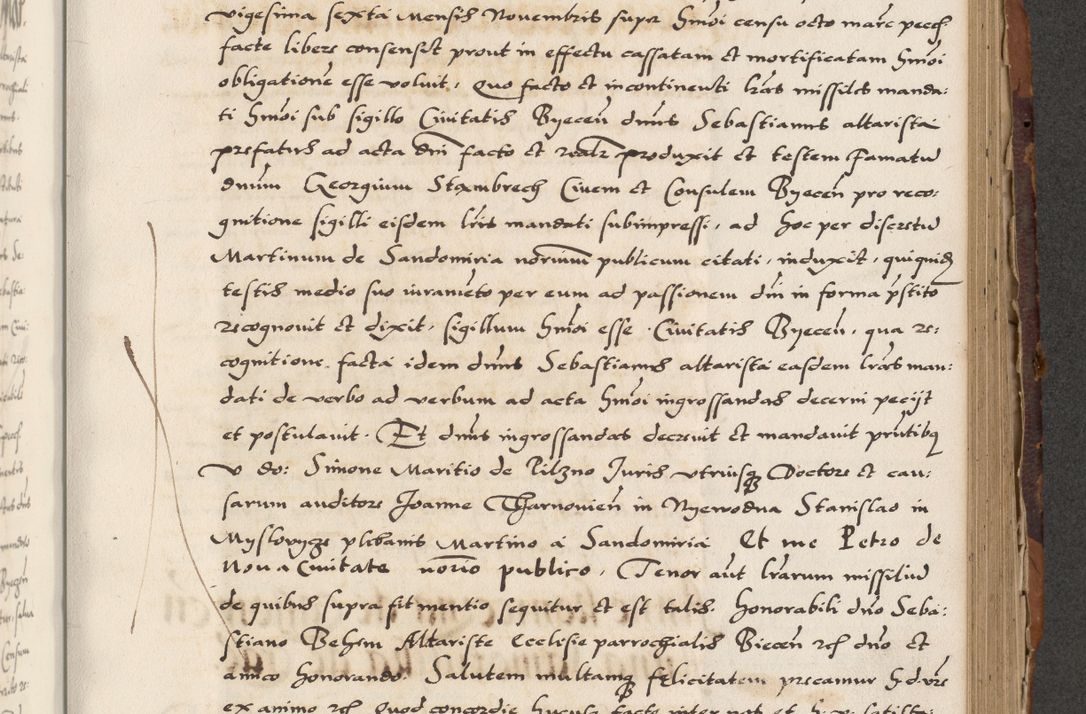 vigesima sexta mensis Novembris super hmoi censu octo marc pecch
facte libere consensit prout in effectu cassatam et mortificatam hmoi
obligatione esse voluit, Quo facto et incontinenti lras missiles manda:
ti hmoi sub sigillo Civitatis Byecen dnus Sebastianus altarista
prefatus ad acta dni facto et realr produxit et testem famatu
dnum Georgium Stambrech Civem et Consulem Byecen pro reco:
gnitione sigilli eisdem lris mandati subimpressi, ad hoc per discretu
Martinum de Sandomiria norium publicum citati, induxit, quiquid
testis medio suo iurameto per eum ad passionem dni in forma pstito
recognovit et dixit, sigillum hmoi esse Civitatis Byecen, qua re:
cognitione facta idem dnus Sebastianus altarista easdem lras man:
dati de verbo ad verbum ad acta hmoi ingrossandas decerni peciit
et postulavit. Et dnus ingrossandas decrevit et mandavit pntibq
v do: Simone Maritio de Pilzno Juris utriusq Doctore et cau:
sarum auditore Joanne Tharnovien in Nyewodna Stanislao in
Myslovycze plebanis Martino a Sandomiria Et me Petro de
Nova Civitate norio publico, Tenor aut lrarum missiliu
de quibus supra fit mentio sequitur et est talis. Honorabili dno Seba:
stiano Behem Altariste Ecclesie parrochialis Biecen rch dno et
amico honorando. Salutem multamq felicitatem precamur h.d.vre
ex animo rch Quod concordie hucusq facte inter nat et